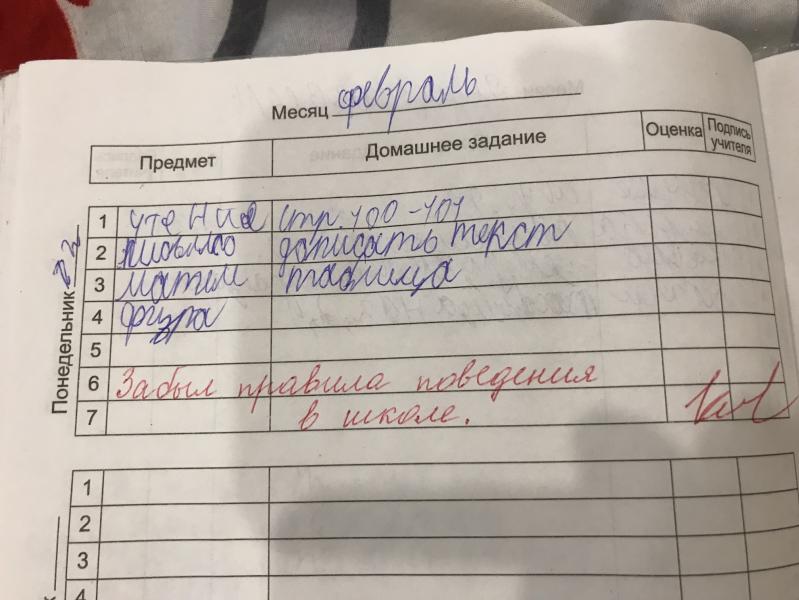 Месяц февраль
Предмет Домашнее задание Оценка Подпись учителя
Понедельник 22
1 чтение стр. 100-101
2 письмо дописать текст
3 матем таблица
4 физра
5
6 Забыл правила поведения
7 в школе.
1
2
3
4